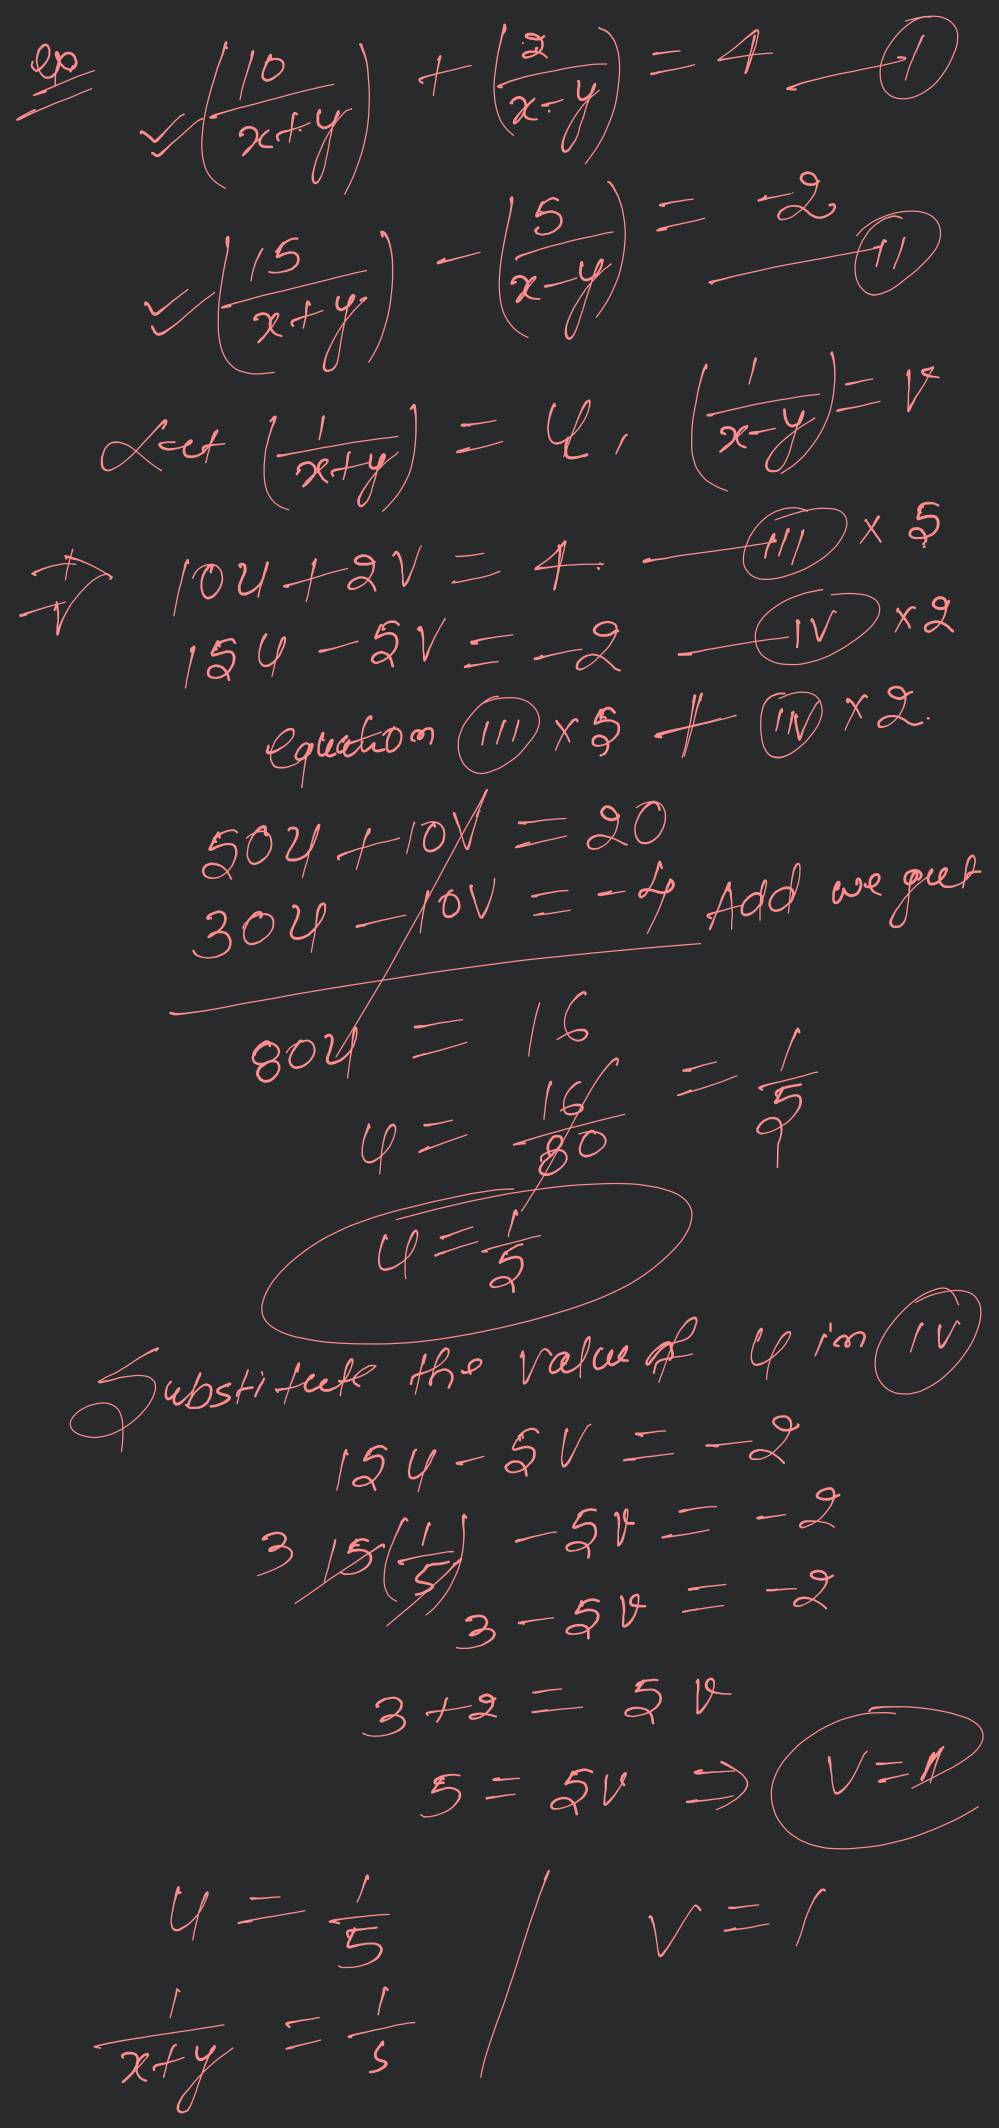 eg (10/(x+y)) + (2/(x-y)) = 4 — I
(15/(x+y)) - (5/(x-y)) = -2 — II
Let (1/(x+y)) = u, (1/(x-y)) = v
⇒ 10u + 2v = 4 — III × 5
15u - 5v = -2 — IV × 2
equation III × 5 + IV × 2.
50u + 10v = 20
30u - 10v = -4 Add we get
80u = 16
u = 16/80 = 1/5
u = 1/5
Substitute the value of u in IV
15u - 5v = -2
3 15(1/5) - 5v = -2
3 - 5v = -2
3 + 2 = 5v
5 = 5v ⇒ v = 1
u = 1/5 / v = 1
1/(x+y) = 1/5